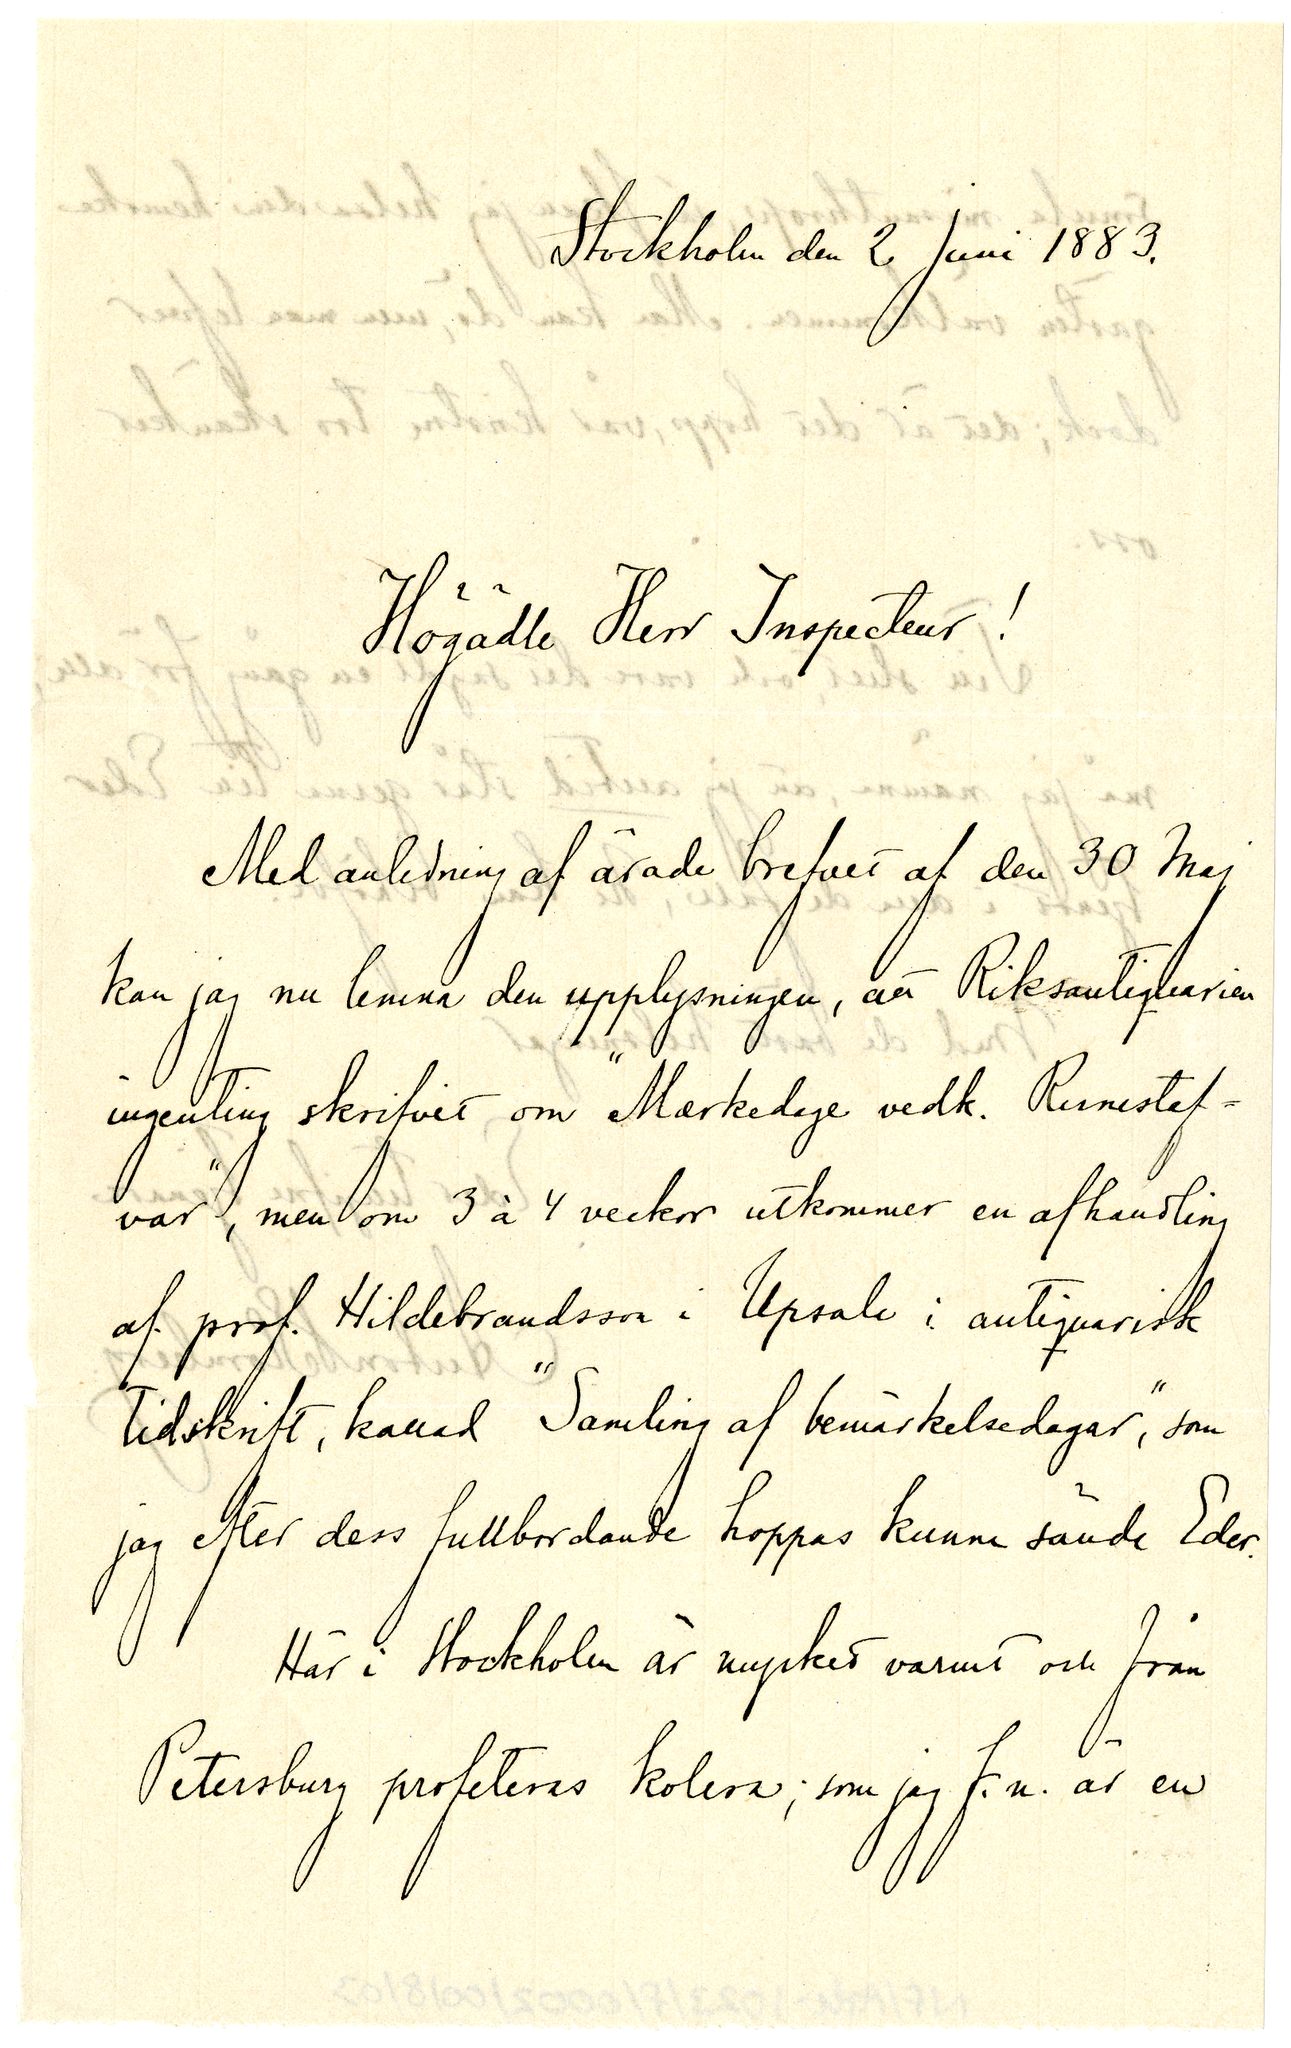 Stockholm den 2 Juni 1883.
Högädle Herr Inspecteur!
Med anledning af ärade brefvet af den 30 Maj
kan jag nu lemna den upplysningen, att Riksantiquarien
ingenting skrifvit om "Mærkedage vedk. Runestaf-
var", men om 3 à 4 veckor utkommer en afhandling
af prof. Hildebrandsson i Upsala i antiquarisk
Tidskrift, kallad "Samling af bemärkelsedagar", som
jag efter dess fullbordande hoppas kunna sända Eder.
Här i Stockholm är mycket varmt och från
Petersburg profeteras kolera; som jag f. n. är en